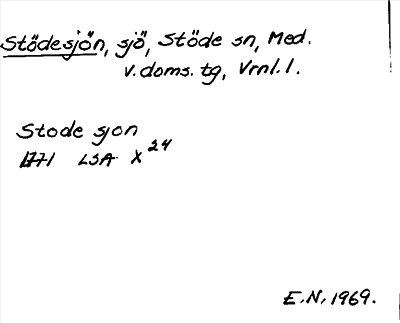 Stödesjön, sjö, Stöde sn, Med.
v. doms. tg, Vrnl. l.
Stode sjon
1771 LSA X 24
E.N. 1969.